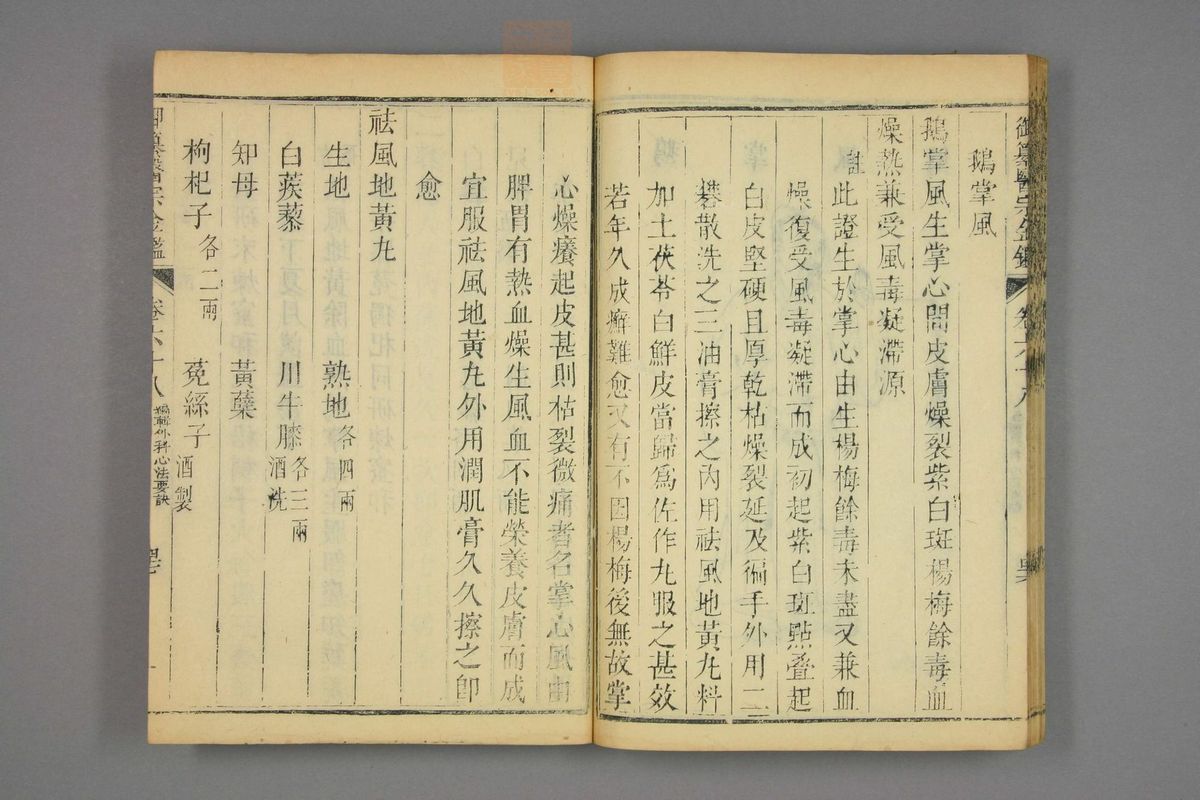 御纂醫宗金鑑
卷六十八
鵝掌風
鵝掌風生掌心間皮膚燥裂紫白斑楊梅餘毒血
燥熱兼受風毒凝滯源
註
此證生於掌心由生楊梅餘毒未盡又兼血
燥復受風毒凝滯而成初起紫白斑㸃叠起
白皮堅硬且厚乾枯燥裂延及徧手外用二
礬散洗之三油膏擦之內用祛風地黃九料
加土茯苓白鮮皮當歸爲佐作九服之甚效
若年久成癬難愈又有不因楊梅後無故掌
心燥癢起皮甚則枯裂微痛者名掌心風由
脾胃有熱血燥生風血不能榮養皮膚而成
宜服祛風地黃九外用潤肌膏久久擦之卽
愈
祛風地黃九
生地 熟地各四兩
白蒺藜 川牛膝酒洗各三兩
知母 黃蘗
枸杞子各二兩 菟絲子酒製
御纂醫宗金鑑
卷六十八
編輯外科心法要訣